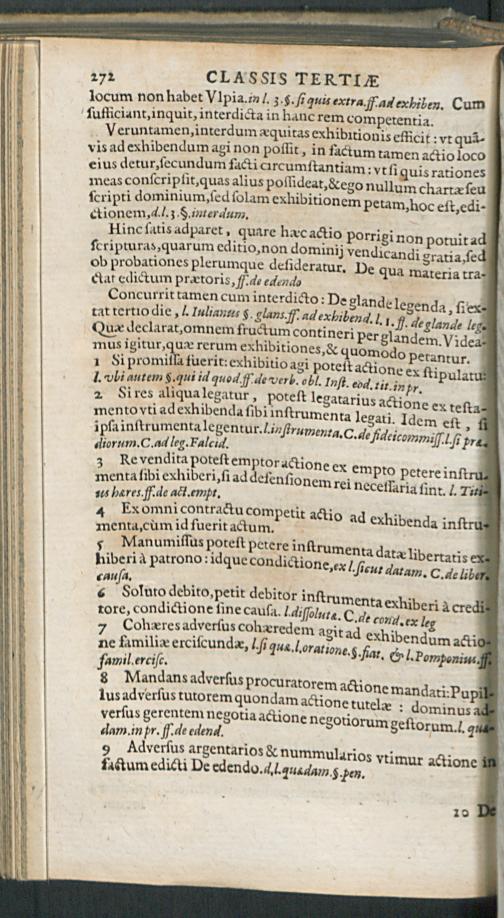 272 CLASSIS TERTIÆ
locum non habet Vlpia. in l. 3. §. si quis extra. ff. ad exhiben. Cum
sufficiant, inquit, interdicta in hanc rem competentia.
Veruntamen, interdum æquitas exhibitionis efficit: vt quã-
vis ad exhibendum agi non possit, in factum tamen actio loco
eius detur, secundum facti circumstantiam: vt si quis rationes
meas conscripsit, quas alius possideat, & ego nullum chartæ seu
scripti dominium, sed solam exhibitionem petam, hoc est, edi-
ctionem, d. l. 3. §. interdum.
Hinc satis adparet, quare hæc actio porrigi non potuit ad
scripturas, quarum editio, non dominij vendicandi gratia, sed
ob probationes plerumque desideratur. De qua materia tra-
ctat edictum prætoris, ff. de edendo
Concurrit tamen cum interdicto: De glande legenda, si ex-
tat tertio die, l. Iulianus §. glans. ff. ad exhibend. l. 1. ff. de glande leg.
Quæ declarat, omnem fructum contineri per glandem. Videa-
mus igitur, quæ rerum exhibitiones, & quomodo petantur.
1 Si promissa fuerit: exhibitio agi potest actione ex stipulatu:
l. vbi autem §. qui id quod. ff. de verb. obl. Inst. eod. tit. in pr.
2 Si res aliqua legatur, potest legatarius actione ex testa-
mento vti ad exhibenda sibi instrumenta legati. Idem est, si
ipsa instrumenta legentur. l. instrumenta. C. de fideicommiss. l. si præ-
diorum. C. ad leg. Falcid.
3 Re vendita potest emptor actione ex empto petere instru-
menta sibi exhiberi, si ad defensionem rei necessaria sint. l. Titi-
us hæres. ff. de act. empt.
4 Ex omni contractu competit actio ad exhibenda instru-
menta, cùm id fuerit actum.
5 Manumissus potest petere instrumenta datæ libertatis ex-
hiberi à patrono: idque condictione, ex l. sicut datam. C. de liber.
causa.
6 Soluto debito, petit debitor instrumenta exhiberi à credi-
tore, condictione sine causa. l. dissoluta. C. de cond. ex leg
7 Cohæres adversus cohæredem agit ad exhibendum actio-
ne familiæ erciscundæ, l. si quæ. l. oratione. §. fiat. & l. Pomponius. ff.
famil. ercisc.
8 Mandans adversus procuratorem actione mandati: Pupil-
lus adversus tutorem quondam actione tutelæ: dominus ad-
versus gerentem negotia actione negotiorum gestorum. l. quæ-
dam. in pr. ff. de edend.
9 Adversus argentarios & nummularios vtimur actione in
factum edicti De edendo. d. l. quædam. §. pen.
10 De